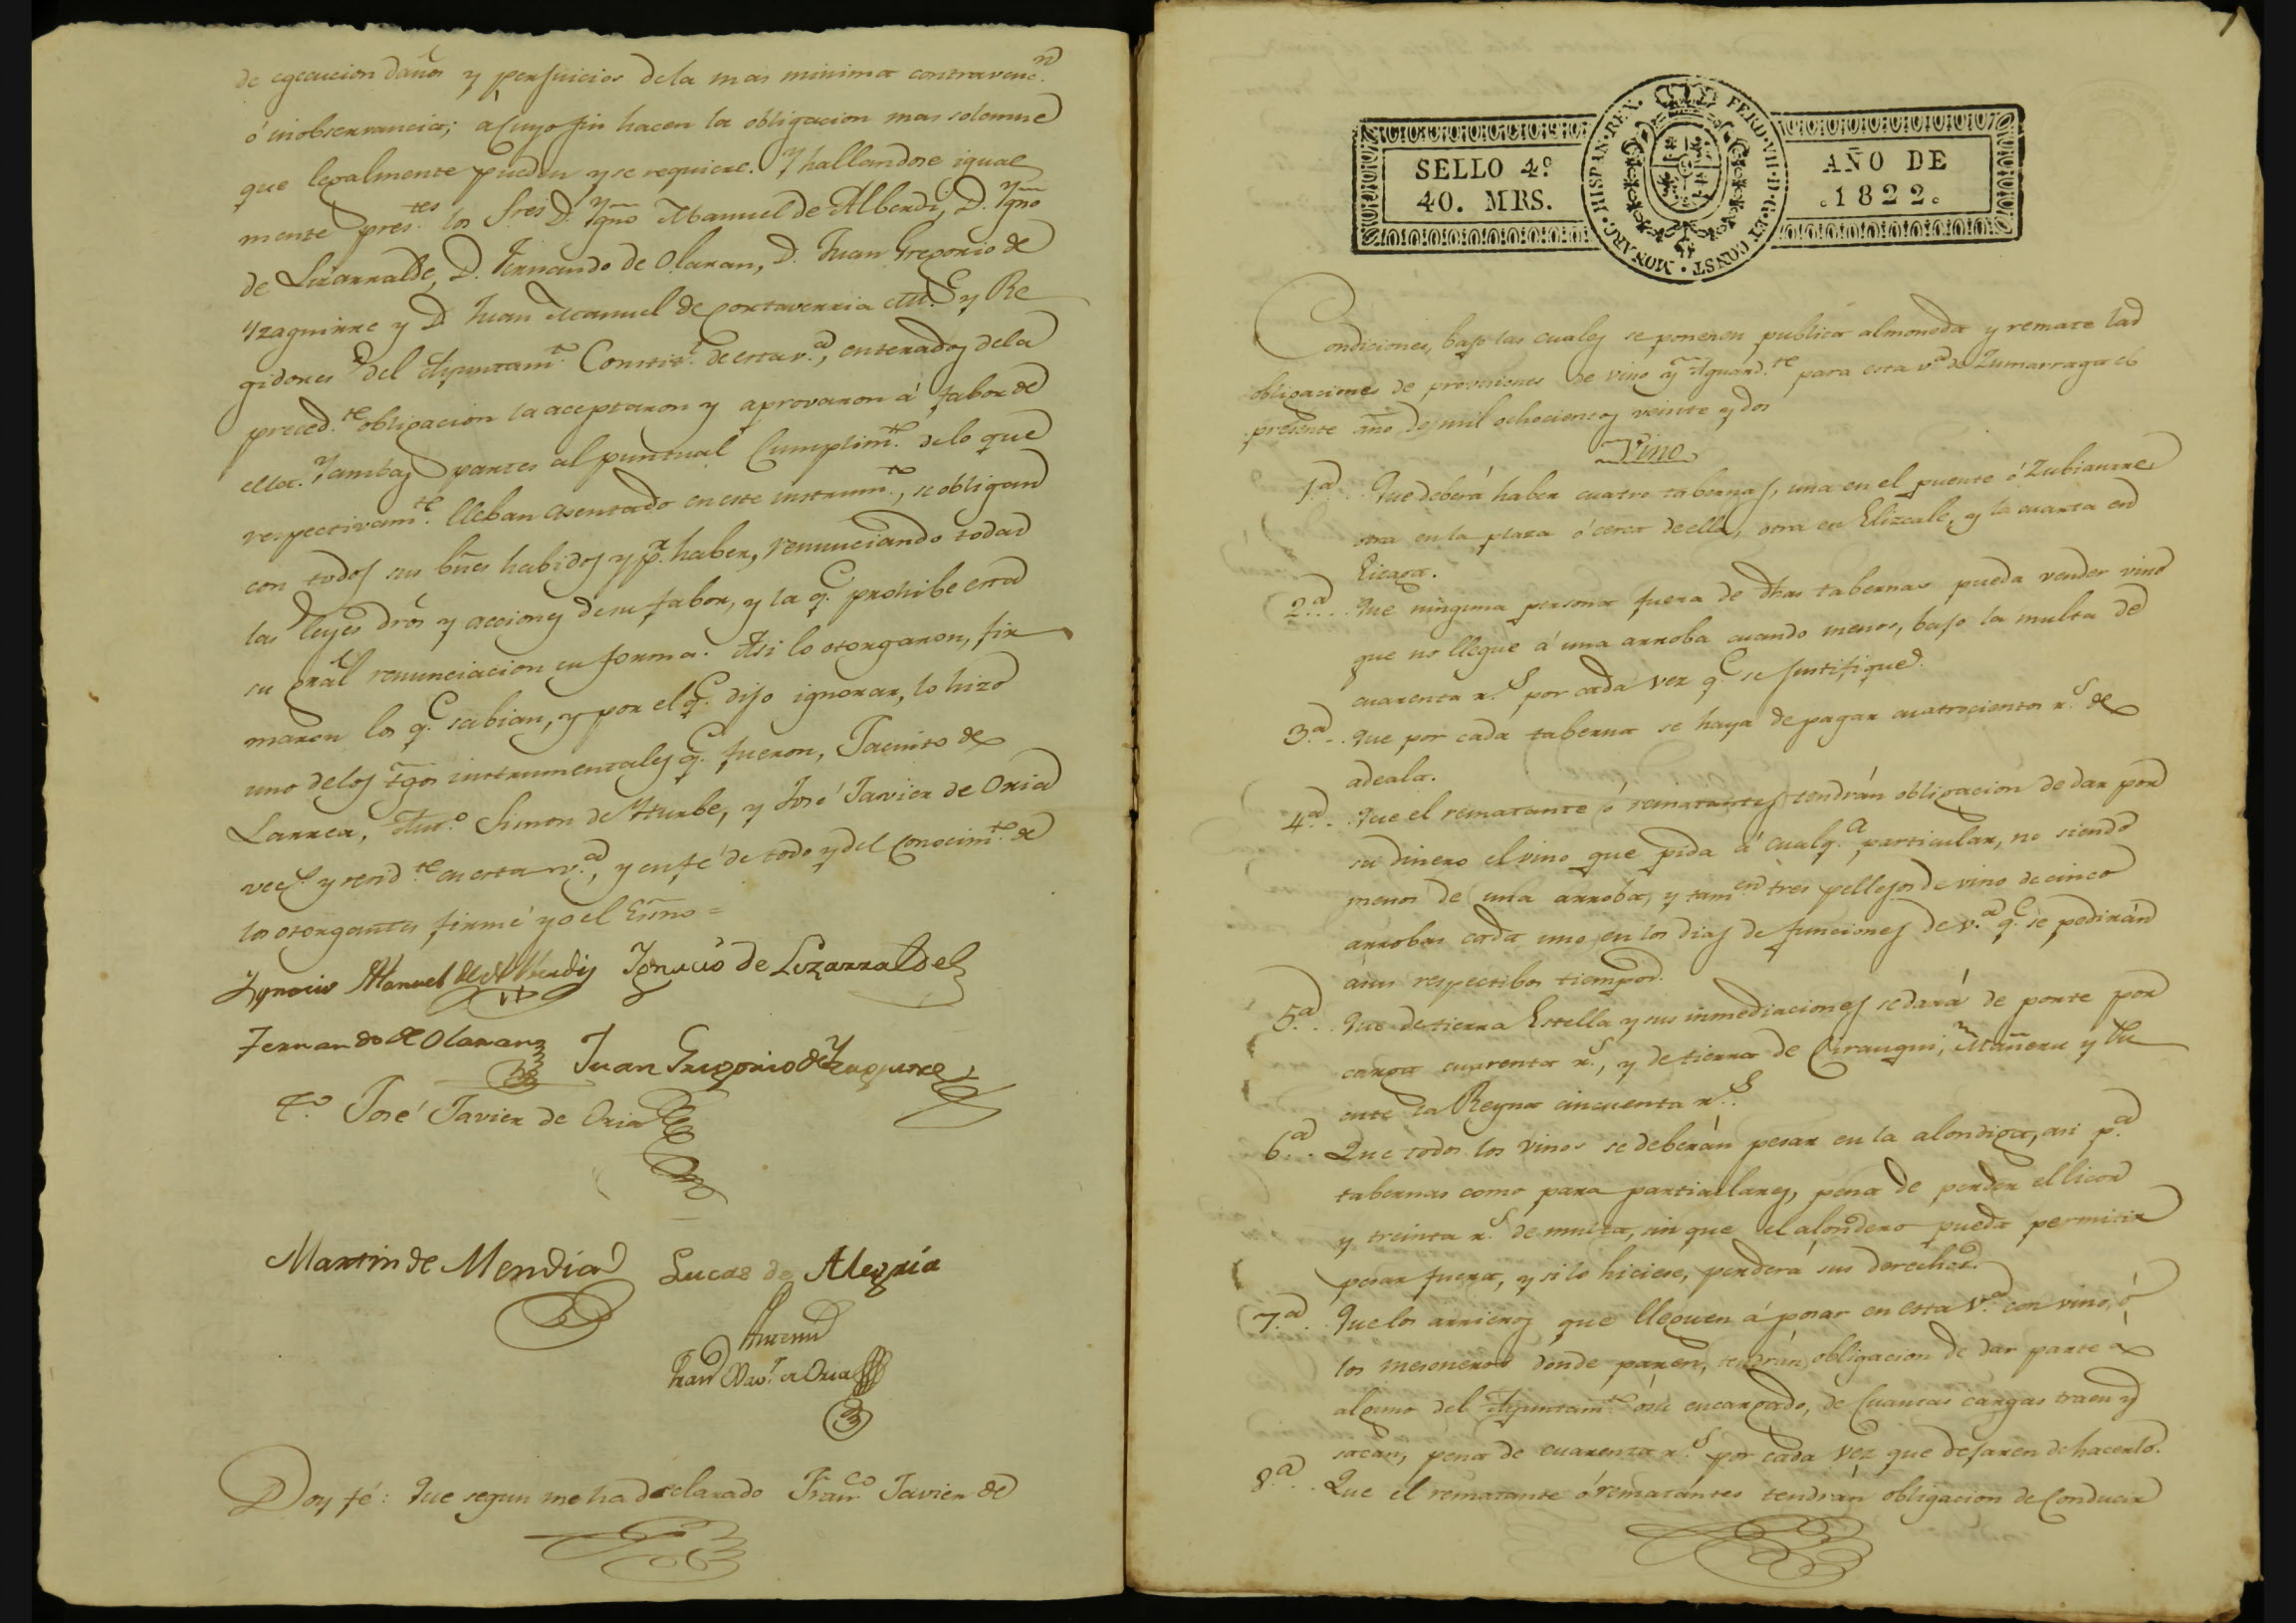 de egecucion daños y perjuicios dela mas minima contravenc.n
ó inobservancia; á cuyo fin hacen la obligacion mas solemne
que legalmente pueden y se requiere. Y hallandose igual
mente pres.tes los S.res D. Ygno Manuel de Alberdi, D. Ygno
de Lizarralde, D. Fernando de Olaran, D. Juan Gregorio de
Yzaguirre y D. Juan Manuel de Cortaverria y Re
gidores del Ayuntam.to Constit.l de esta v.a, enterados dela
preced.te obligacion la aceptaron y aprovaron á fabor de
ella. Y ambas partes al puntual Cumplim.to delo que
respectivam.te lleban asentado en este instrum.to, se obligan
con todos sus bñes habidos y p.r haber, renunciando todas
las leyes dros y acciones de su fabor, y la q.e prohibe esta
su gral renunciacion en forma. Asi lo otorgaron, fir
maron los q.e sabian, y por el q.e dijo ignorar, lo hizo
uno delos tgos instrumentales q.e fueron, Jacinto de
Larrea, Simon de Yturbe, y José Javier de Oria
vec.s y resid.tes en esta v.a, y en fé de todo y del conocim.to de
los otorgantes firmé yo el Esnno =
Ygnacio Manuel de Alberdi Ygnacio de Lizarralde
Fernando de Olaran Juan Gregorio de Yzaguirre
T.o José Javier de Oria
Martin de Mendia Lucas de Alegria
Antemi
Fran.co Xav.r de Oria
Doy fé: Que segun me ha declarado Fran.co Javier de
SELLO 4º
40. MRS.
FERD·VII·D·G·ET CONST·MONARC·HISPAN·REX·
AÑO DE
1822.
Condiciones, bajo las cuales se ponen en publica almoneda y remate las
obligaciones de provisiones de vino y Aguard.te para esta v.a de Zumarraga el
presente año de mil ochocientos veinte y dos
Vino
1.a Que deberá haber cuatro tabernas, una en el puente ó Zubiaurre
otra en la plaza ó cerca de ella, otra en Elizcale, y la cuarta en
Eizaga.
2.a Que ninguna persona fuera de dhas tabernas pueda vender vino
que no llegue á una arroba cuando menos, bajo la multa de
cuarenta r.s por cada vez q.e se justifique.
3.a Que por cada taberna se haya de pagar cuatrocientos r.s de
adeala.
4.a Que el rematante ó rematantes tendrán obligacion de dar por
su dinero el vino que pida á cualq.a particular, no siendo
menos de una arroba, y tam.en tres pellejos de vino de cinco
arrobas cada uno en los dias de funciones de v.a q.e se pedirán
ásus respectibos tiempos.
5.a Que de tierra Estella y sus inmediaciones se dará de porte por
carga cuarenta r.s, y de tierra de Cirauqui, Mañeru y Pu
ente la Reyna cincuenta r.s.
6.a Que todos los vinos se deberán pesar en la alondiga, asi p.a
tabernas como para particulares, pena de perder el licor
y treinta r.s de multa, sin que el alondero pueda permitir
pesar fuera, y si lo hiciese, perderá sus derechos.
7.a Que los arrieros que lleguen á posar en esta v.a con vino, ó
los mesoneros donde paren, tendrán obligacion de dar parte á
alguno del Ayuntam.to ósu encargado, de Cuantas cargas traen y
sacan, pena de cuarenta r.s por cada vez que dejaren de hacerlo.
8.a Que el rematante ó rematantes tendrán obligacion de Conducir